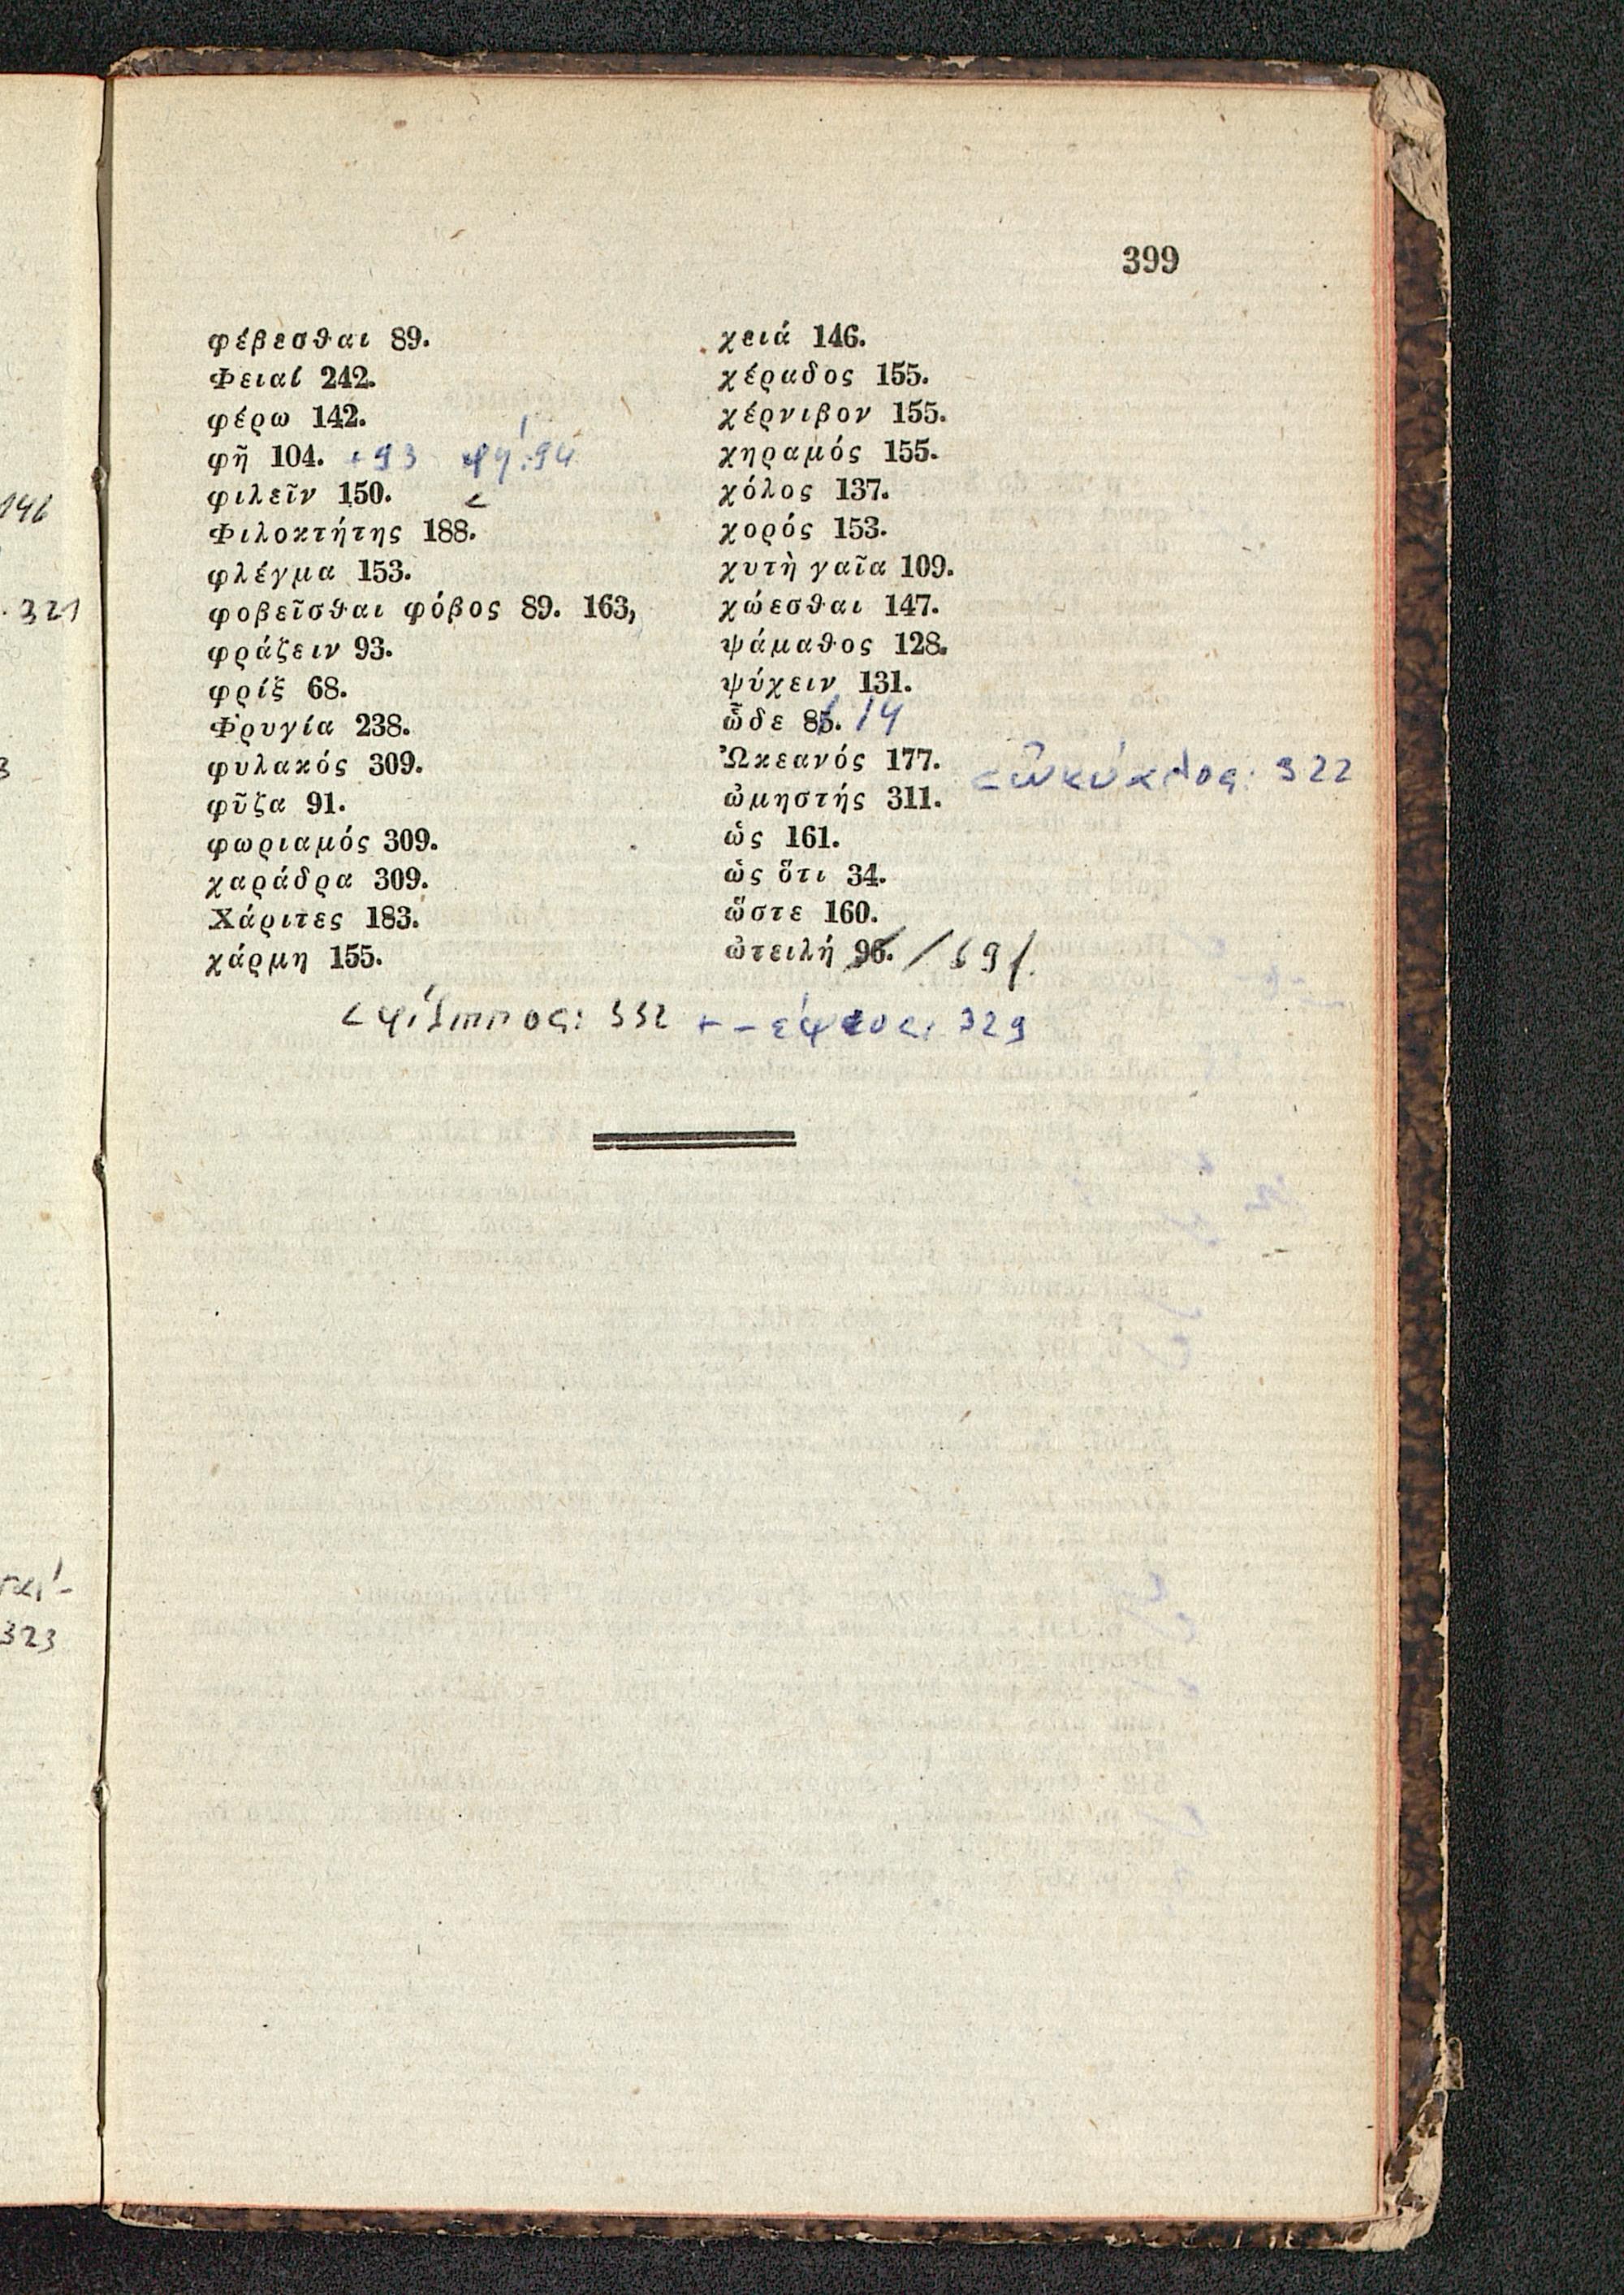 399
φέβεσθαι 89.
Φειαί 242.
φέρω 142.
φῆ 104. + 93 φή: 94
φιλεῖν 150.
Φιλοκτήτης 188.
φλέγμα 153.
φοβεῖσθαι φόβος 89. 163,
φράζειν 93.
φρίξ 68.
Φρυγία 238.
φυλακός 309.
φῦζα 91.
φωριαμός 309.
χαράδρα 309.
Χάριτες 183.
χάρμη 155.
χειά 146.
χέραδος 155.
χέρνιβον 155.
χηραμός 155.
χόλος 137.
χορός 153.
χυτὴ γαῖα 109.
χώεσθαι 147.
ψάμαθος 128.
ψύχειν 131.
ὧδε 85. /4
Ὠκεανός 177.
ὠκύαλος: 322
ὠμηστής 311.
ὡς 161.
ὡς ὅτι 34.
ὥστε 160.
ὠτειλή 96. / 69
< φίλιππος: 332 + –έφιππος: 329
146
321
323